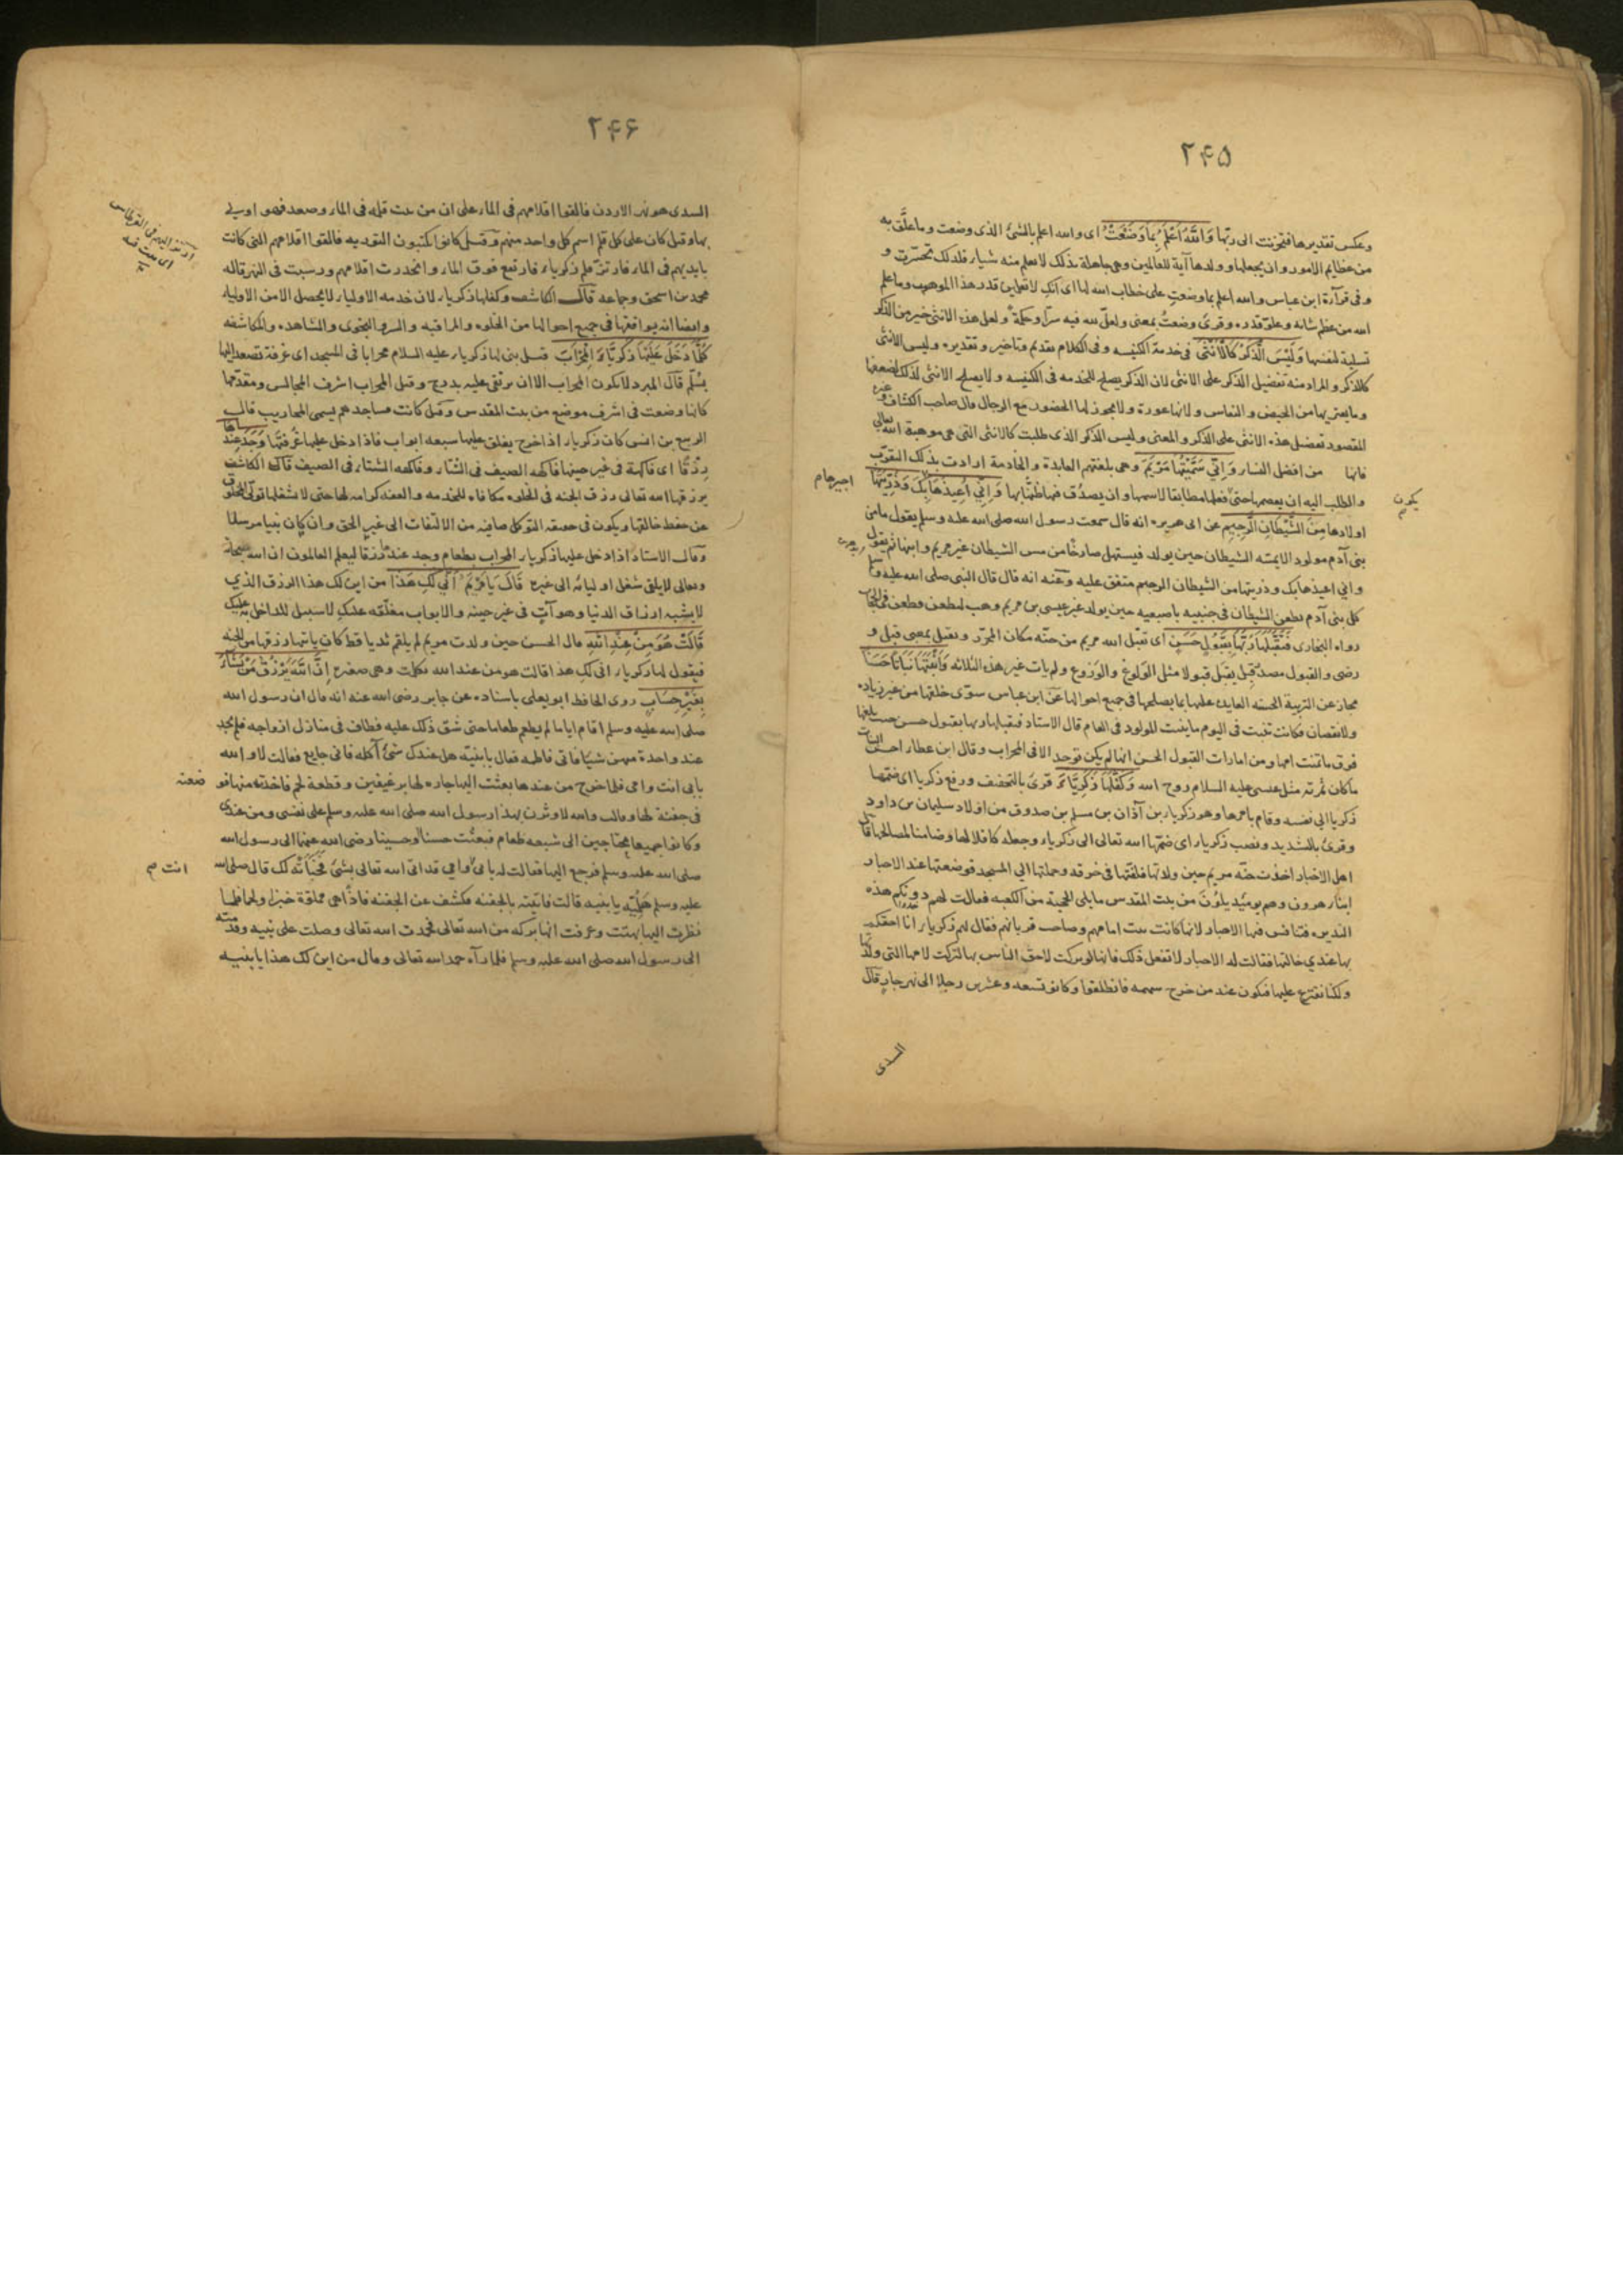 ۲۴۵
وعكس تقديرها فتحزنت الى ربها وَاللَّهُ اَعْلَمُ بِمَا وَضَعَتْ اى والله اعلم بالشئ الذى وضعت وما علق به
من عظايم الامور وان يجعلها وولدها آية للعالمين وهى جاهلة بذلك لا تعلم منه شيا فلذلك تحسرت و
وفى قرآءة ابن عباس والله اعلم بما وضعتِ على خطاب الله لها اى انكِ لا تعلمين قدر هذا الموهوب وما علم
الله من عظم شانه وعلو قدره وقرئ وضعتُ بمعنى ولعل لله فيه سرا وحكمة ولعل هذه الانثى خير من الذكر
تسلية لنفسها وَلَيْسَ الذَّكَرُ كَالْاُنْثَى فى خدمة الكنيسه وفى الكلام تقديم وتاخير وتقديره وليس الانثى
كالذكر والمراد منه تفضيل الذكر على الانثى لان الذكر يصلح للخدمه فى الكنيسه ولا يصلح الانثى لذلك لضعفها
وما يعتريها من الحيض والنفاس ولانها عورة ولا يجوز لها الحضور مع الرجال قال صاحب الكشاف وغيره
المقصود تفضيل هذه الانثى على الذكر والمعنى وليس الذكر الذى طلبت كالانثى التى هى موهبة الله تعالى
فانها من افضل النساء وَاِنِّى سَمَّيْتُهَا مَرْيَمَ وهى بلغتهم العابدة والخادمة ارادت بذلك التقرب
والطلب اليه ان يعصمها حتى فعلها مطابقا لاسمها وان يصدق فيها ظنها بها وَاِنِّى اُعِيذُهَا بِكَ وَذُرِّيَّتَهَا
يكون
اجيرها م
اولادها مِنَ الشَّيْطَانِ الرَّجِيمِ عن ابى هريره انه قال سمعت رسول الله صلى الله عليه وسلم يقول ما من
بنى آدم مولود الا يمسه الشيطان حين يولد فيستهل صارخا من مس الشيطان غير مريم وابنها ثم يقول
وانى اعيذها بك وذريتها من الشيطان الرجيم متفق عليه وعنه انه قال قال النبى صلى الله عليه وسلم
كل بنى آدم يطعن الشيطان فى جنبيه باصبعيه حين يولد غير عيسى بن مريم وهب ليطعن فطعن فى الحجاب
رواه البخارى فَتَقَبَّلَهَا رَبُّهَا بِقَبُولٍ حَسَنٍ اى تقبل الله مريم من حنه مكان المحرر وتقبل بمعنى قبل و
رضى والقبول مصدر قبل يقبل قبولا مثل الولوغ والوزوع ولم يات غير هذه الثلاثه وَاَنْبَتَهَا نَبَاتًا حَسَنًا
مجاز عن التربية الحسنه العايده عليها بما يصلحها فى جميع احوالها عن ابن عباس سوى خلقها من غير زياده
ولا نقصان فكانت تنبت فى اليوم ما ينبت المولود فى العام قال الاستاد فتقبلها ربها بقبول حسن حيث بلغها
فوق ما تمنت امها ومن امارات القبول الحسن انها لم يكن توجد الا فى المحراب وقال ابن عطار احسن النبات
ما كان ثمرته مثل عيسى عليه السلام روح الله وَكَفَّلَهَا زَكَرِيَّاءَ قرئ بالتخفيف ورفع زكريا اى ضمها
زكريا الى نفسه وقام بامرها وهو زكريا بن آذان بن مسلم بن صدوق من اولاد سليمان بن داود
وقرئ بالتشديد ونصب زكريا اى ضمها الله تعالى الى زكريا وجعله كافلا لها وضامنا لمصالحها قال
اهل الاخبار اخذت حنه مريم حين ولادتها فلفتها فى خرقه وحملتها الى المسجد فوضعتها عند الاحبار
ابناء هرون وهم يومئذ يلون من بيت المقدس ما يلى الحجبة من الكعبه فقالت لهم دونكم هذه
النذيره فتنافس فيها الاحبار لانها كانت بنت امامهم وصاحب قربانهم فقال لهم زكريا انا احقكم
بها عندى خالتها فقالت له الاحبار لا تفعل ذلك فانها لو تركت لاحق الناس بها لتركت لامها التى ولدتها
ولكنا نقترع عليها فتكون عند من خرج سهمه فانطلقوا وكانو تسعه وعشرين رجلا الى نهر جار قال
السدى
۲۴۶
السدى هو نهر الاردن فالقوا اقلامهم فى الماء على ان من ثبت قلمه فى الماء وصعد فهو اولى
بها وقيل كان على كل قلم اسم كل واحد منهم وقيل كانوا يكتبون التوريه فالقوا اقلامهم التى كانت
بايديهم فى الماء فارتز قلم زكريا فارتفع فوق الماء وانحدرت اقلامهم ورسبت فى النهر قاله
محمد بن اسحق وجماعه قال الكاشف وكفلها زكريا لان خدمه الاولياء لا يحصل الا من الاولياء
وايضا انه يوافقها فى جميع احوالها من الخلوه والمراقبه والسر والنجوى والمشاهده والمكاشفه
كُلَّمَا دَخَلَ عَلَيْهَا زَكَرِيَّاءُ الْمِحْرَابَ قيل بنى لها زكريا عليه السلام محرابا فى المسجد اى غرفة تصعد اليها
بسلم قال المبرد لا يكون المحراب الا ان يرتقى عليه بدرج وقيل المحراب اشرف المجالس ومقدمها
كانها وضعت فى اشرف موضع من بيت المقدس وقيل كانت مساجدهم يسمى المحاريب قال
الربيع بن انس كان زكريا اذا خرج يغلق عليها سبعه ابواب فاذا دخل عليها غرفتها وَجَدَ عِنْدَهَا
رِزْقًا اى فاكهة فى غير حينها فاكهه الصيف فى الشتاء وفاكهه الشتاء فى الصيف قال الكاشف
يرزقها الله تعالى رزق الجنه فى الخلوه مكافاه للخدمه والعفه كرامه لها حتى لا يشغلها قوتى المخلوق
عن حفظ خالقها ويكون فى حقيقه التوكل صافيه من الالتفات الى غير الحق وان كان نبيا مرسلا
وقال الاستاد اذا دخل عليها زكريا المحراب بطعام وجد عندها رزقا ليعلم العالمون ان الله سبحانه
وتعالى لا يلقى شغل اوليائه الى غيره قَالَ يَا مَرْيَمُ اَنَّى لَكِ هَذَا من اين لك هذا الرزق الذى
لا يشبه ارزاق الدنيا وهو آت فى غير حينه والابواب مغلقه عليك لا سبيل للداخل به عليك
قَالَتْ هُوَ مِنْ عِنْدِ اللَّهِ قال الحسن حين ولدت مريم لم يلقم ثديا قط كان ياتيها رزقها من الجنه
فيقول لها زكريا انى لك هذا قالت هو من عند الله تكلمت وهى صغيره اِنَّ اللَّهَ يَرْزُقُ مَنْ يَشَاءُ
بِغَيْرِ حِسَابٍ روى الحافظ ابو يعلى باسناده عن جابر رضى الله عنه انه قال ان رسول الله
صلى الله عليه وسلم اقام اياما لم يطعم طعاما حتى شق ذلك عليه فطاف فى منازل ازواجه فلم يجد
عند واحدة منهن شيئا فاتى فاطمه فقال يا بنيه هل عندك شئ آكله فانى جايع فقالت لا والله
بابى انت وامى فلما خرج من عندها بعثت اليها جاره لها برغيفين وقطعة لحم فاخذته منها فو
ضعته
فى جفنة لها وقالت والله لاوثرن بهذا رسول الله صلى الله عليه وسلم على نفسى ومن عندى
وكانوا جميعا محتاجين الى شبعه طعام فبعثت حسنا وحسينا رضى الله عنهما الى رسول الله
صلى الله عليه وسلم فرجع اليها فقالت له بابى وامى قد اتى الله تعالى بشئ فخبأته لك قال صلى الله
انت م
عليه وسلم هلميه يا بنيه قالت فاتيته بالجفنه فكشف عن الجفنه فاذا هى مملوة خبزا ولحما فلما
نظرت اليها بهتت وعرفت انها بركه من الله تعالى فحمدت الله تعالى وصلت على نبيه وقدمته
الى رسول الله صلى الله عليه وسلم فلما رآه حمد الله تعالى وقال من اين لك هذا يا بنيه